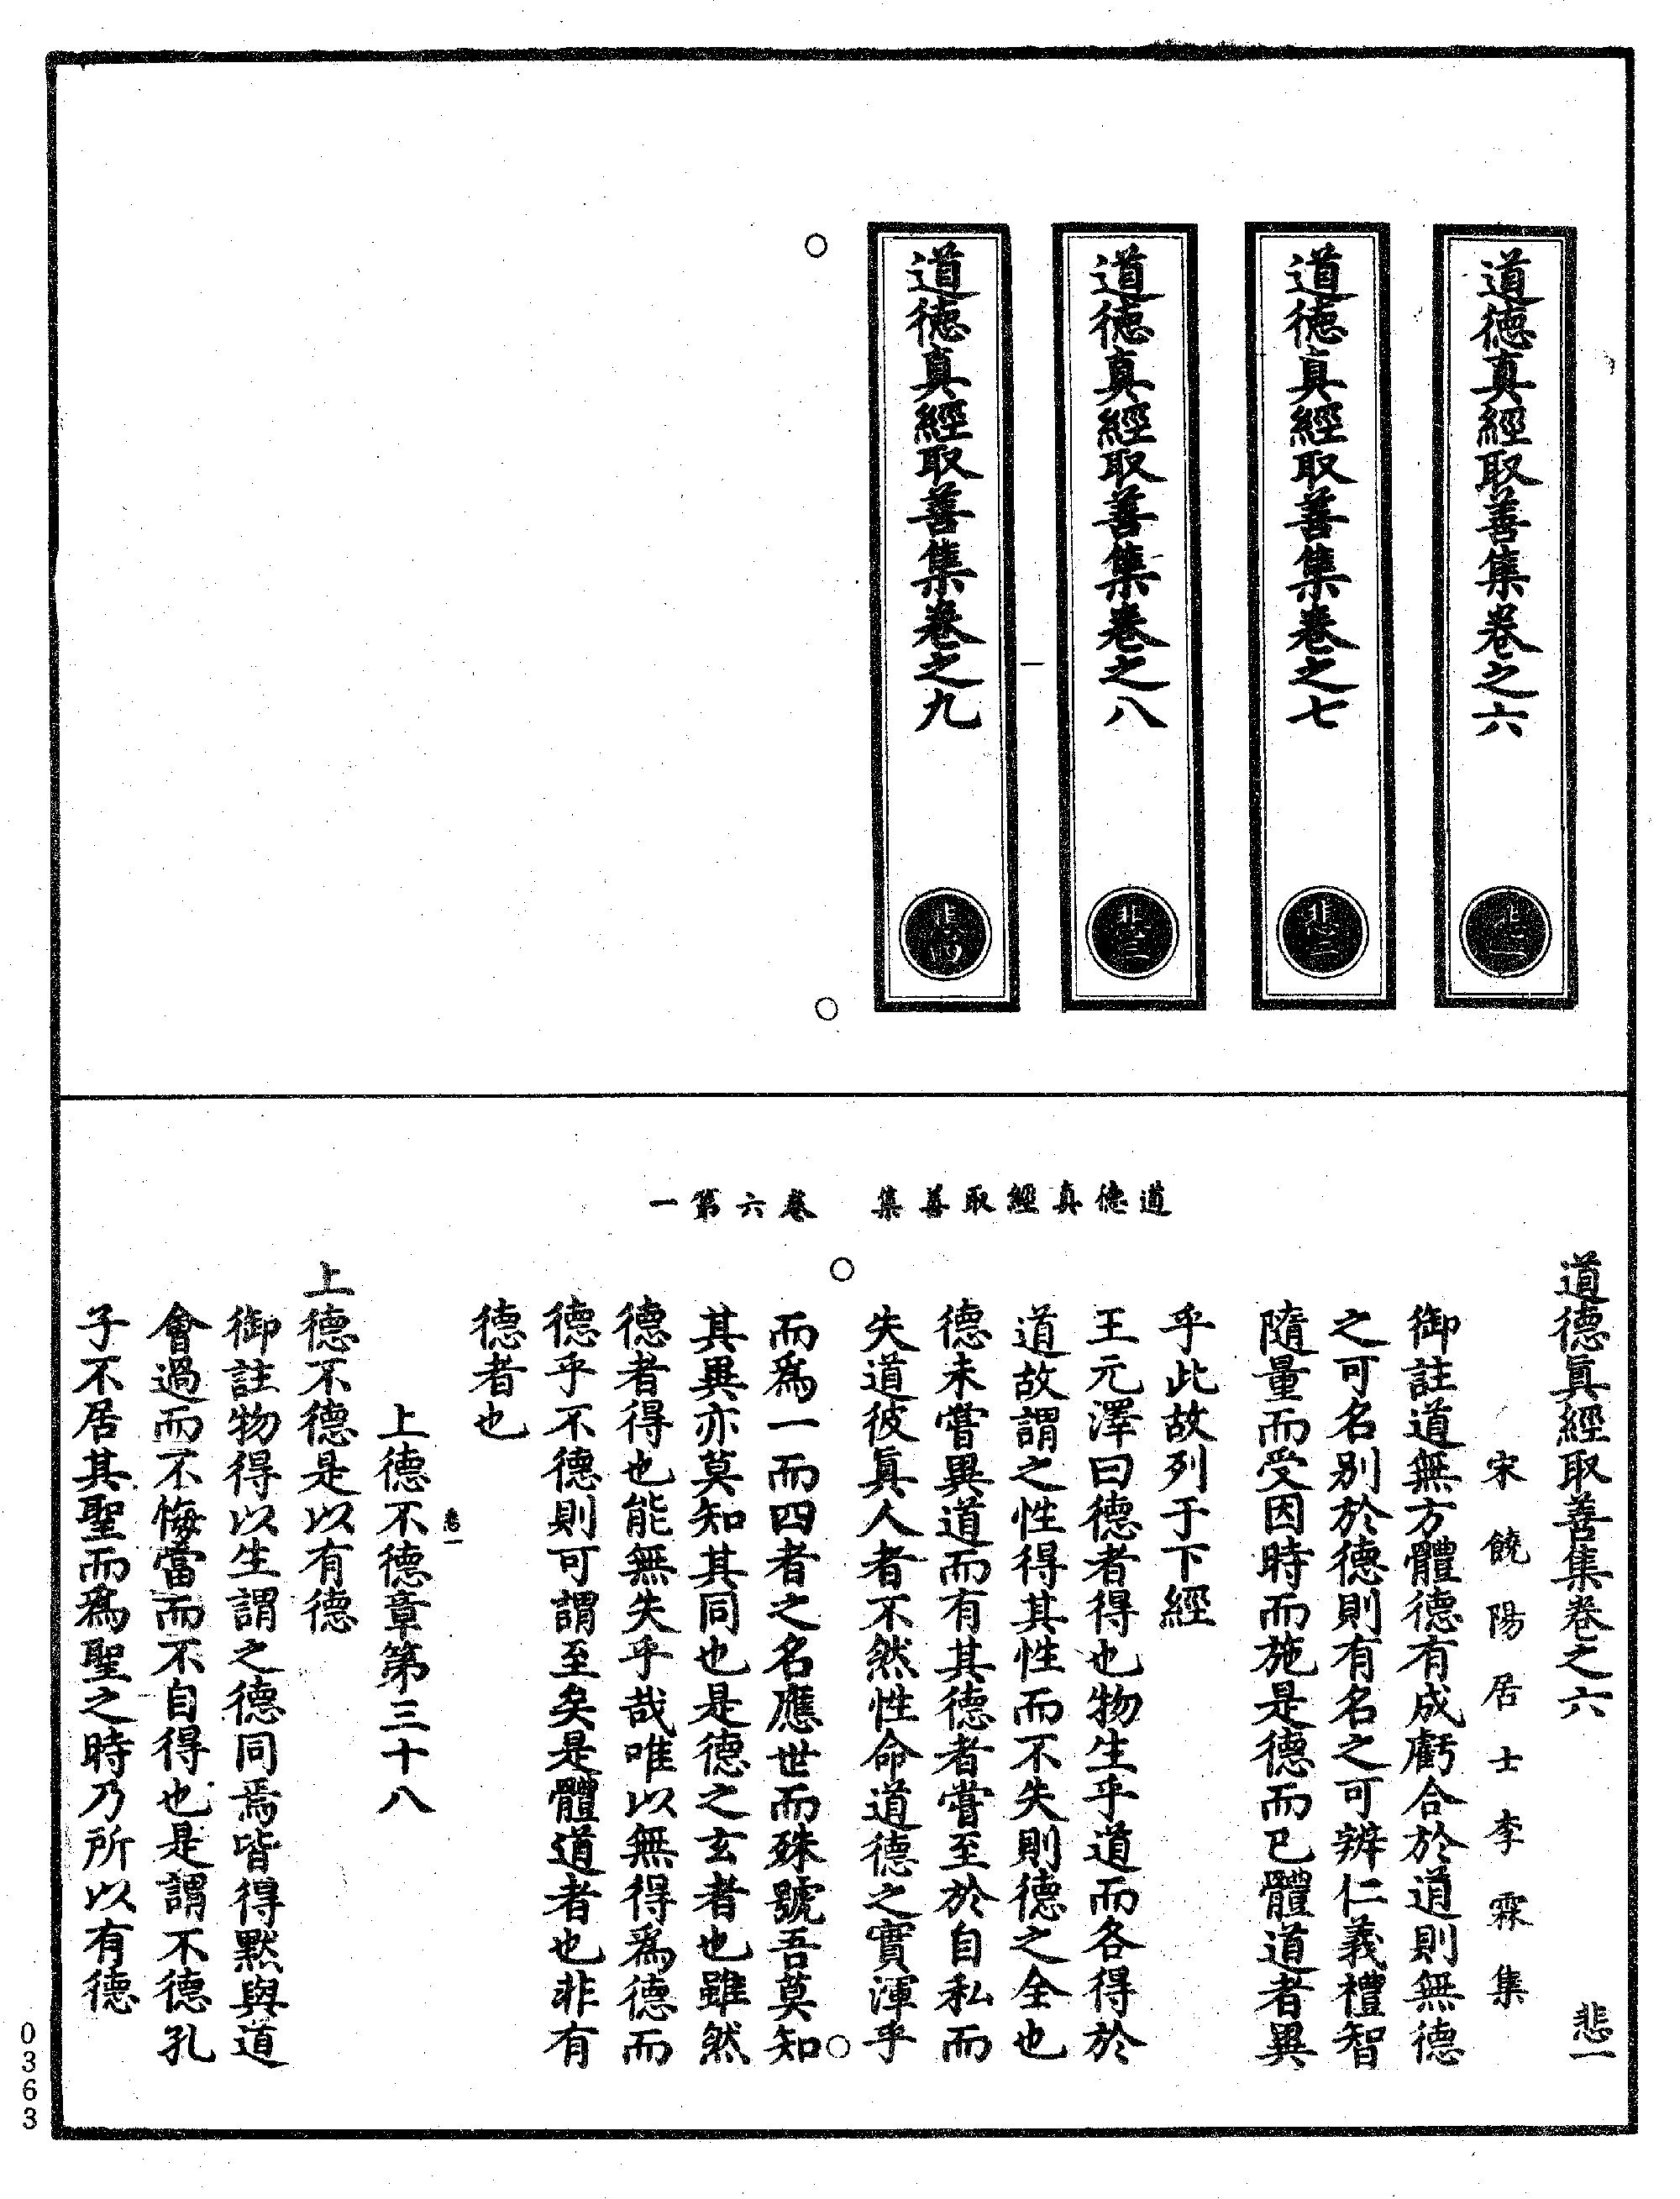 道德真經取善集卷之六
道德真經取善集卷之七
悲二
道德真經取善集卷之八
悲三
道德真經取善集卷之九
悲四
道德真經取善集 卷六第一
道德眞經取善集卷之六 悲一
宋饒陽居士李霖集
御註道無方體德有成虧合於道則無德
之可名別於德則有名之可辨仁義禮智
隨量而受因時而施是德而已體道者異
乎此故列于下經
王元澤曰德者得也物生乎道而各得於
道故謂之性得其性而不失則德之全也
德未嘗異道而有其德者嘗至於自私而
失道彼眞人者不然性命道德之實渾乎
而爲一而四者之名應世而殊號吾莫知
其異亦莫知其同也是德之玄者也雖然
德者得也能無失乎哉唯以無得爲德而
德乎不德則可謂至矣是體道者也非有
德者也
上德不德章第三十八
悲一
上德不德是以有德
御註物得以生謂之德同焉皆得默與道
會過而不悔當而不自得也是謂不德孔
子不居其聖而爲聖之時乃所以有德
0363